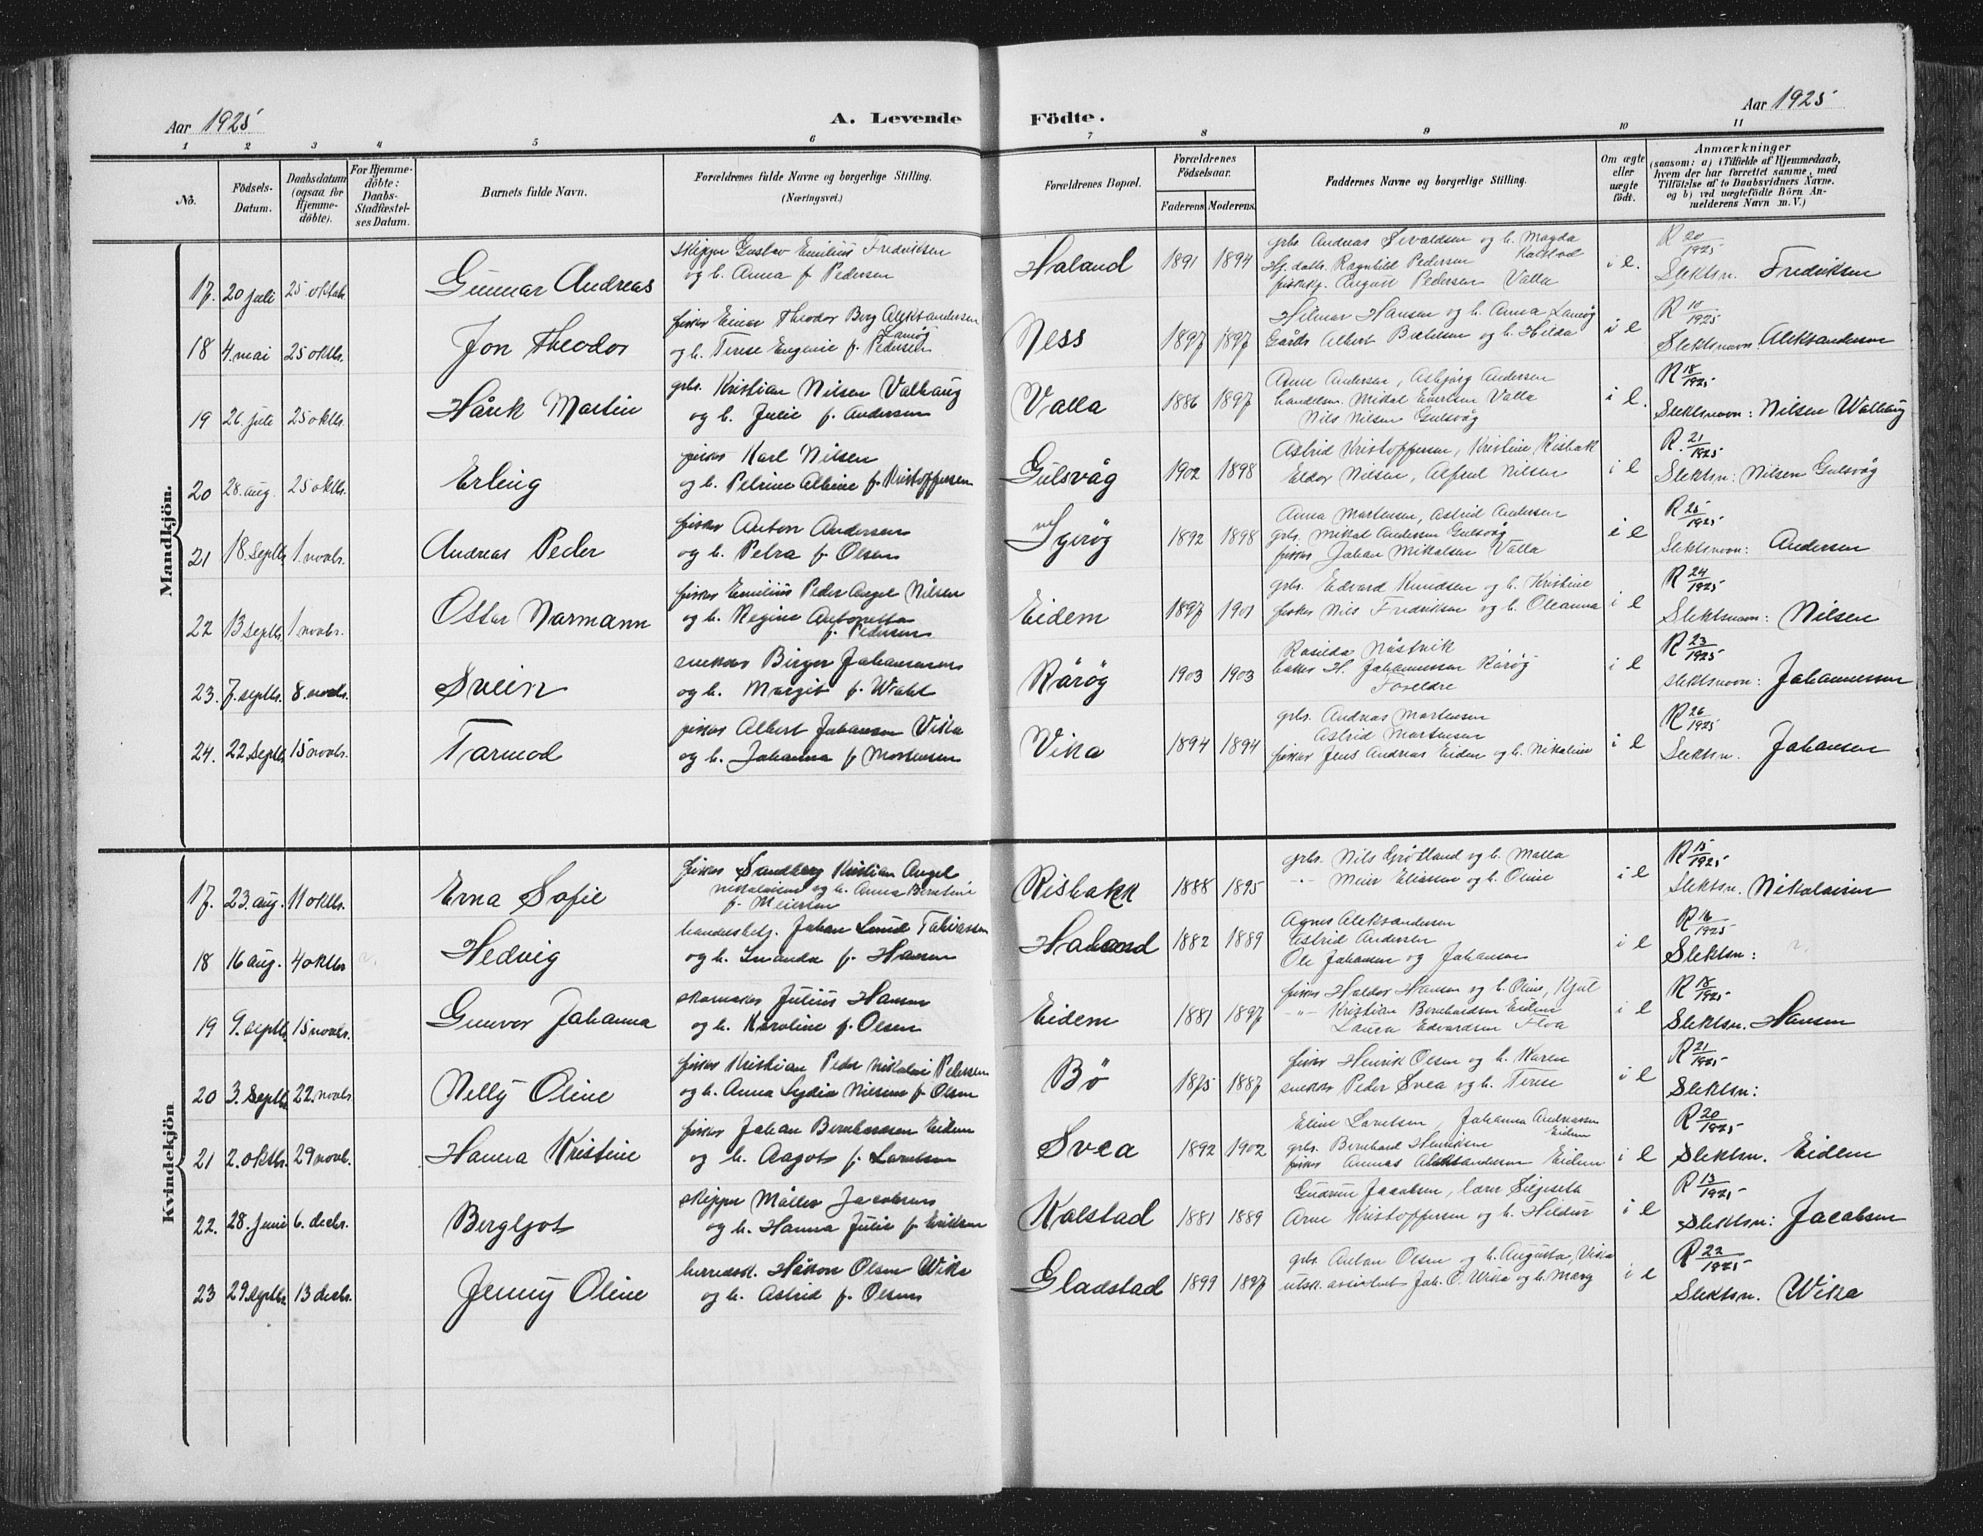 Aar 1925 A. Levende Födte. Aar 1925
1 2 3 4 5 6 7 8 9 10 11
No.
Födsels-Datum.
Daabsdatum (ogsaa for Hjemme-döbte).
For Hjemme-döbte: Daabs-Stadfæstel-ses Datum.
Barnets fulde Navn.
Forældrenes fulde Navne og borgerlige Stilling. (Næringsvei.)
Forældrenes Bopæl.
Forældrenes Födselsaar.
Faderens. Moderens.
Faddernes Navne og borgerlige Stilling.
Om ægte eller uægte födt.
Anmærkninger
(saasom: a) i Tilfælde af Hjemmedaab, hvem der har forrettet samme, med Tilföielse af to Daabsvidners Navne. og b) ved uægtefödte Börn An-melderens Navn m. V.)
Mandkjön.
17. 20 juli 25 oktbr. Gunnar Andreas
skipper Gustav Emilius Fredriksen
og h. Anna f. Pedersen
Haland 1891 1894
grbr. Andreas Sivaldsen og h. Magda
Kalstad
Ragnhild Pedersen
August Pedersen Valla
i e.
R 20/1925
Slektsn. Fredriksen
18 4. mai 25 oktbr. Jon Theodor
fisker Einar Theodor Berg Aleksandersen
Lamøg
og h. Terese Eugenie f. Pedersen
Ness 1897 1897
Hilmar Hansen og h. Anna Lamøg
Gårdbr. Albert og h. Hilda
i e
R 10/1925
Slektsnavn: Aleksandersen
19 26. juli 25 oktbr. Hårek Martin
grbr. Kristian Nilsen Valhaug
og h. Julie f. Andersen
Valla 1886 1897
Andersen, Asbjørg Andersen
handelsm. Mikal Valla
Nils Nilsen Gulsvåg
i e.
R 18/1925
Slektsnavn: Nilsen Walhaug
20 28. aug. 25 oktbr. Erling
fisker Karl Nilsen
og h. Petrine Albine f. Kristoffersen
Gulsvåg 1902 1898
Astrid Kristoffersen, Kristine Risbakk
Eldor Nilsen, Alfred Nilsen
i e
R. 21/1925
Slektsn: Nilsen Gulsvåg
21 18. septbr. 1 novbr. Andreas Peder
fisker Anton Andersen
og h. Petra f. Olsen
1892 1898
Anna Martensen, Astrid Andersen
grbr. Mikal Andersen Gulsvåg
fisker Johan Mikalsen Valla
i e
R 25/1925
Slektsnavn: Andersen
22 13 septbr. 1 novbr. Ottar Normann
fisker Emilius Peder Angel Nilsen
og h. Regine Antonette
f. Pedersen
Eidem 1897 1901
grbr. Edvard Knudsen og h. Kristine
fisker Nils Fredriksen og h. Oleanna
i e
R 24/1925
Slektsnavn: Nilsen
23. 7. septbr. 8. novbr. Svein
snekker Birger Johannessen
og h. Margit f.
Rårøg 1903 1903
Rosilda Nåstvik
baker H. Johannessen Rårøg
Foreldre
i e
R 23/1925
Slektsnavn: Johannessen
24. 22. septbr. 15 novbr. Tormod
fisker Albert Johansen Vika
og h. Johanna f Mortensen
Vika 1894 1894
grbr. Andreas Mortensen
Astrid Mortensen
fisker Jens Andreas Eidem og h. Nikoline
i e
R 26/1925
Slektsn. Johansen
Kvindekjön
17. 23. aug. 11 oktbr. Erna Sofie
fisker Sandberg Kristian Angel
Nikolaisen og h. Anna Berntine
f. Meiersen
Risbakk 1888 1895
grbr. Nils Grøtland og h. Malla
-"- Meier Eliassen og h. Oline
i e
R 15/1925
Slektsn. Nikolaisen
18 16 aug. 4 oktbr Hedvig
handelsbetj. Johan Lund Tobiassen
og h. f. Hansen
Haland 1882 1889
Agnes Aleksandersen
Astrid Andersen
Ole Johansen og Johansen
i e
R 16/1925
Slektsn:
19 9. septbr. 15 novbr. Gunvor Johanna
skomaker Julius Hansen
og h. Karoline f. Olsen
Eidem 1881 1897
fisker Haldor Hansen og h. Oline, Kjul
-"- Kristian Bernhardsen Eidem
Laura Edvardsen Floa
i e
R 18/1925
Slektsn. Hansen
20 3. septbr. 22. novbr Nelly Oline
fisker Kristian Peder Nikolai Pedersen
og h. Anna Lydia Nilsine f. Olsen
Bø 1875 1887
fisker Henrik Olsen og h. Karen
snekker Peder Svea og h. Terese
i e
R 21/1925
Slektsn:
21 2. oktbr. 29 novb. Hanna Kristine
fisker Johan Bernhardsen Eidem
og h. Aagot f. Lorntsen
Svea 1892 1902
Eline Lorntsen Johanna Andreassen
Eidem
grbr. Bernhard Henriksen
fisker Annas Aleksandersen Eidem
i e
R 20/1925
Slektsn. Eidem
22. 28. juni 6. decbr. Bergljot
skipper Møller Jacobsen
og h. Hanna Julie f. Eriksen
Kalstad 1881 1889
Gudrun Jacobsen, lærer Siljeseth
Arne Kristoffersen og h. Hildur
i e
R 13/1925
Slektsn: Jacobsen
23 29. septbr. 13 decbr. Jenny Oline
herredsk. Håkon Olsen Wika
og h. Astrid f. Olsen
Gladstad 1899 1897
grbr. Anton Olsen og h. Augusta, Vika
utsk. assistent Joh. O. Wika og h. Mary
i e
R 22/1925
Slektsn. Wika